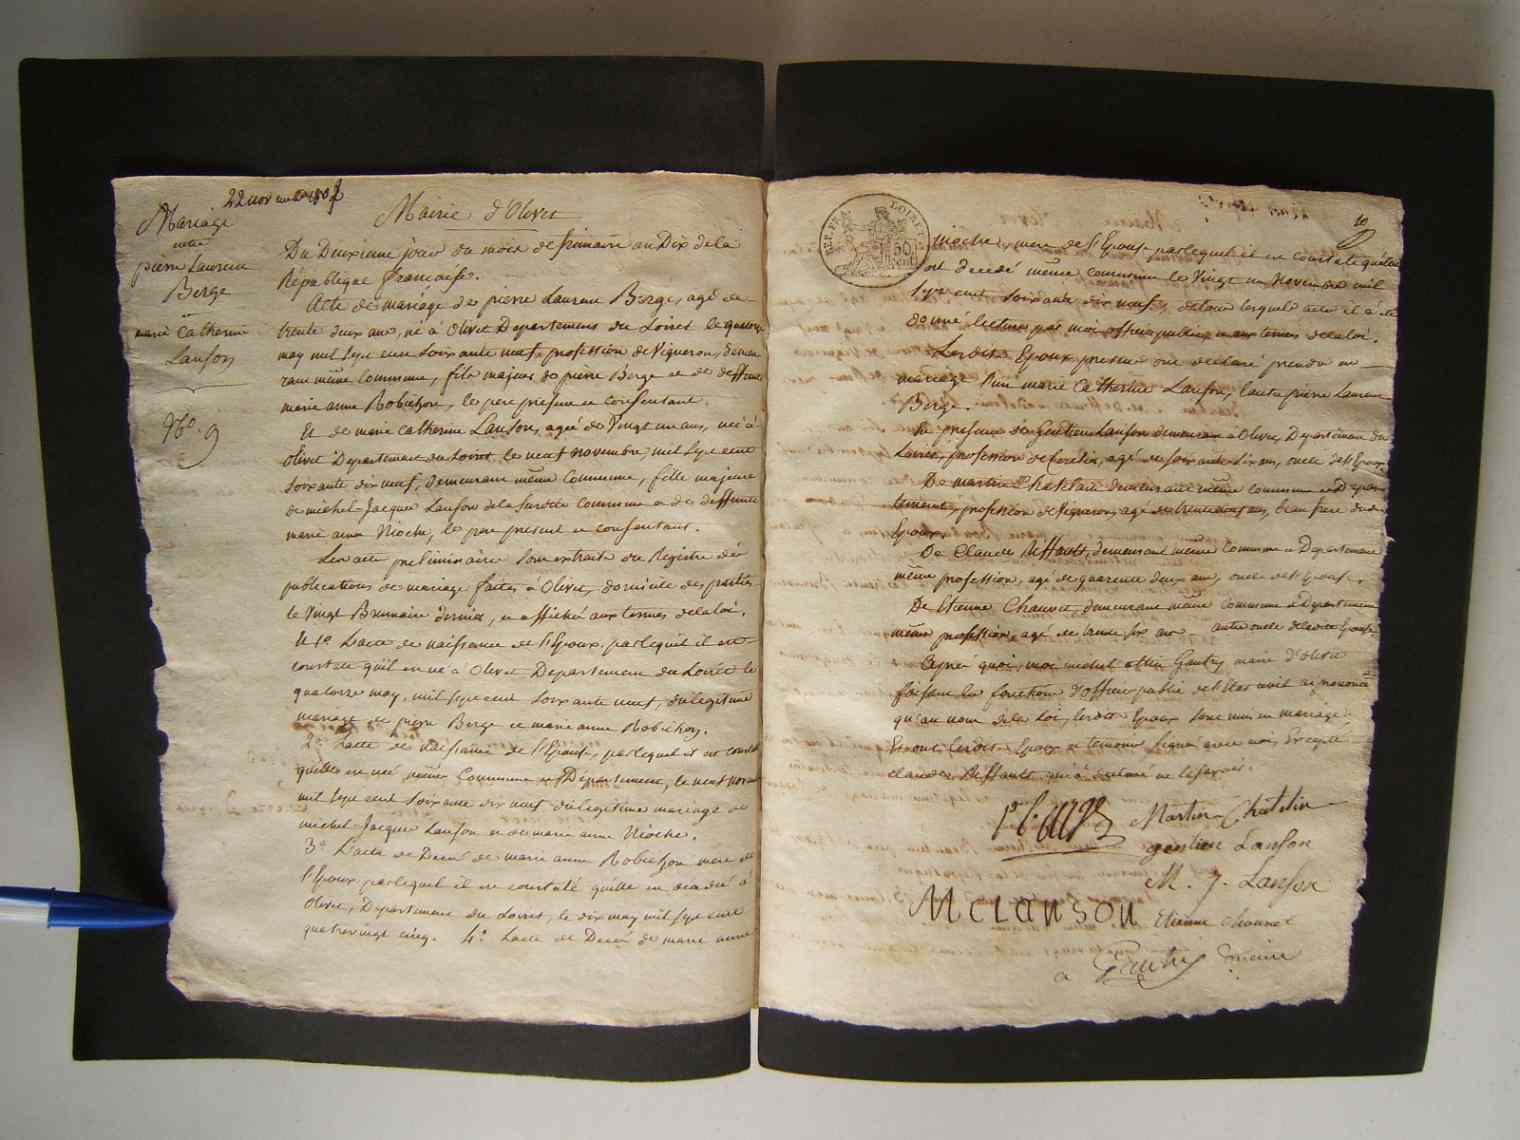 22 novembre 1801
Mairie d'Olivet
Mariage
entre
pierre Laurent
Berge
et
marie Catherine
Lanson
No. 9
Du Deuxieme jour du mois de frimaire an Dix de la
République francaise.
Acte de mariage de pierre Laurent Berge, agé de
trente deux ans, né à Olivet Departement du Loiret le quatorze
may mil sept cent soixante neuf, profession de Vigneron, demeu
rant même Commune, fils majeur de pierre Berge et de deffunte
marie anne Robichon, le pere present et consentant.
Et de marie Catherine Lanson, agée de Vingt un ans, née à
Olivet Departement du Loiret, le neuf novembre, mil sept cent
soixante dix neuf, demeurant même Commune, fille majeure
de michel Jacques Lanson de la susditte Commune et de deffunte
marie anne Nioche, le pere present et consentant.
Les actes preliminaires sont extraits du Registre des
publications de mariage faites à Olivet, domicile des parties
le Vingt Brumaire dernier, et affiché aux termes de la loi.
1o L'acte de naissance de l'Epoux, par lequel il est
constaté qu'il est né à Olivet Departement du Loiret le
quatorze may, mil sept cent soixante neuf, du legitime
mariage de pierre Berge et marie anne Robichon.
2o L'acte de naissance de l'Epouse, par lequel il est constaté
qu'elle est née même Commune et Departement, le neuf novembre
mil sept cent soixante dix neuf du legitime mariage de
michel Jacques Lanson et de marie anne Nioche.
3o L'acte de Decès de marie anne Robichon mere de
l'Epoux par lequel il est constaté qu'elle est decedée à
Olivet, Departement du Loiret, le dix may mil sept cent
quatrevingt cinq. 4o L'acte de Decès de marie anne
REP. FRA.
LOIRET
50
cent
Nioche, mere de l'Epouse par lequel il est constaté qu'elle
est decedé même commune le Vingt un Novembre mil
sept cent soixante dix neuf, de tous lesquels actes il a été
donné lecture par moi officier public et aux termes de la loi.
Lesdits Epoux present ont declaré prendre en
mariage l'un marie Catherine Lanson, l'autre pierre Laurent
Berge.
En presence de Gentien Lanson demeurant à Olivet, Departement du
Loiret, profession de agé de soixante six ans, oncle de l'Epouse
De martin Chatelain demeurant même commune et Depar
tement, profession de Vigneron, agé de trente ans, beau frere dudit
Epoux.
De Claude Deffault, demeurant même Commune et Departement
même profession, agé de quarente deux ans, oncle de l'Epouse.
De Etienne Chauvet, demeurant même Commune et Departement
même profession, agé de trente six ans autre oncle de ladite Epouse
Après quoi, moi michel Gautry maire d'olivet
faisant les fonctions d'officier public de l'Etat civil ai prononcé
qu'au nom de la Loi, lesdits Epoux sont unis en mariage,
Et ont lesdits Epoux et temoins signé avec moi, Excepté
claude Deffault qui a declaré ne le savoir.
P L Berge
Martin Chatelin
gentien Lanson
M. J. Lanson
MC LANSON
Etienne Chauvet
Gautry maire